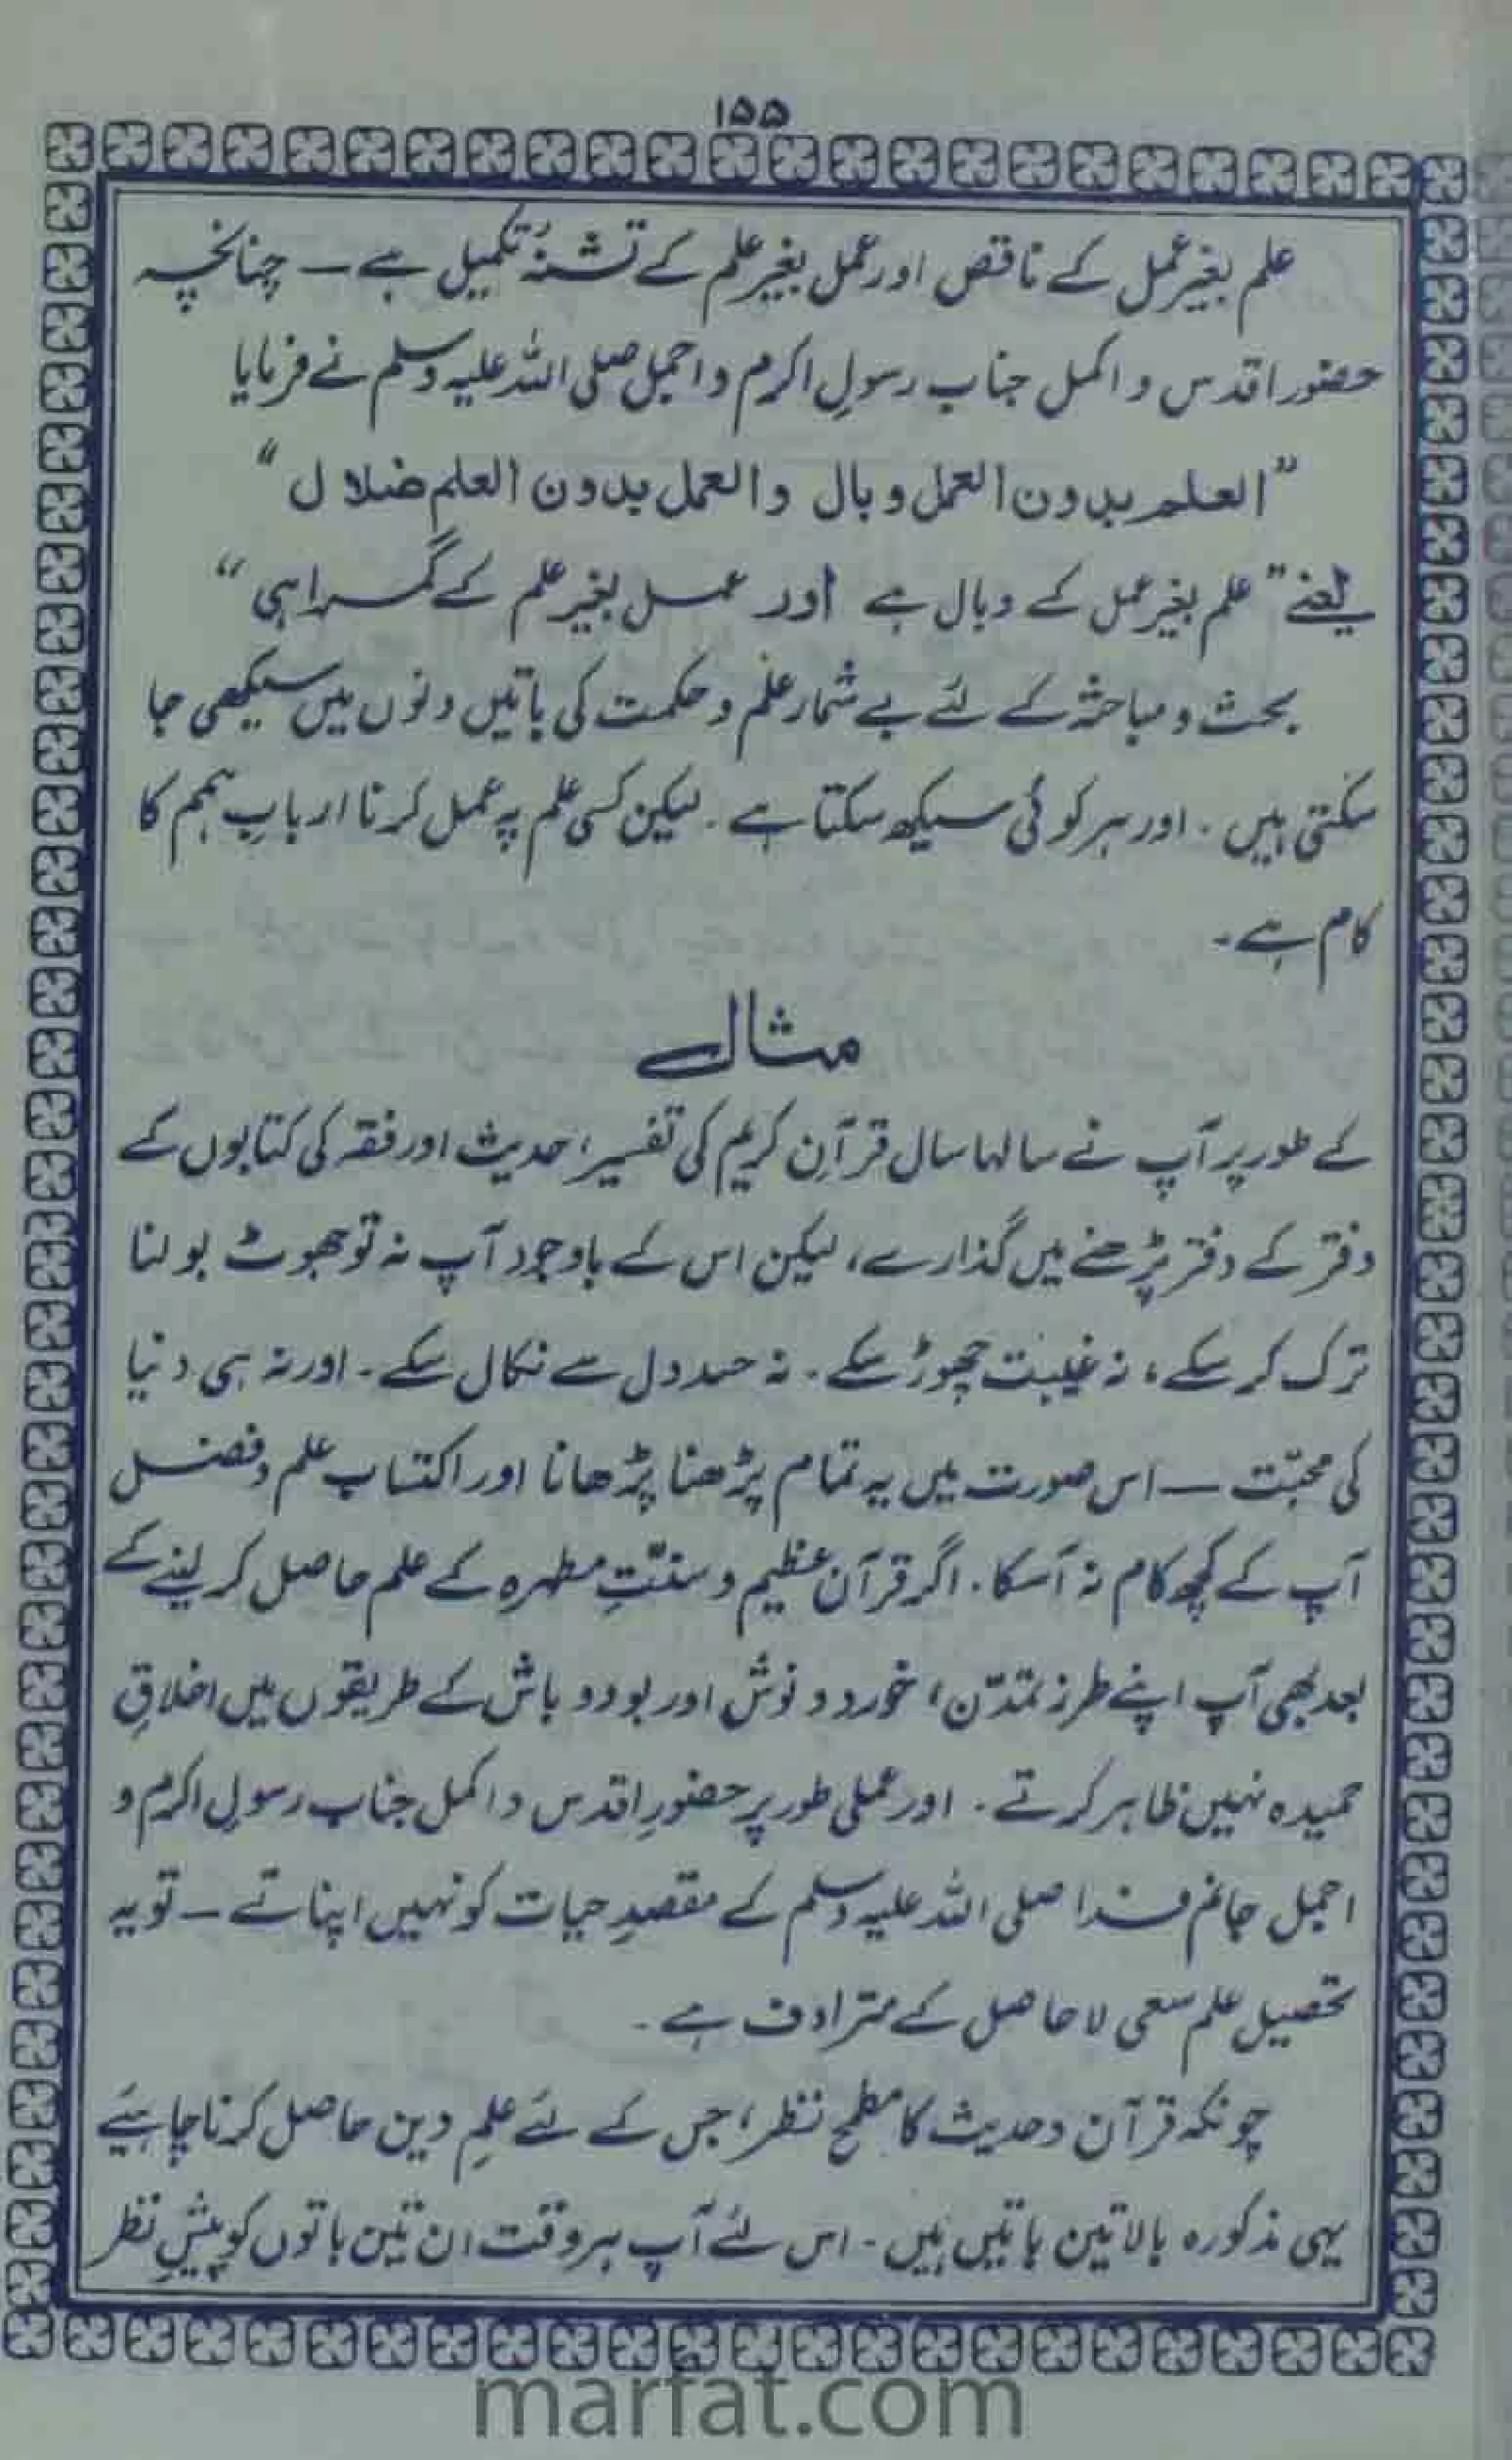 ۱۵۵
علم بغیر عمل کے ناقص اور عمل بغیر علم کے تشنۂ تکمیل ہے — چنانچہ
حضور اقدس و اکمل جناب رسولِ اکرم و اجمل صلی اللہ علیہ وسلم نے فرمایا
”العلم بدون العمل وبال والعمل بدون العلم ضلال“
یعنے ”علم بغیر عمل کے وبال ہے اور عمل بغیر علم کے گمراہی“
بحث و مباحثہ کے لئے بے شمار علم و حکمت کی باتیں دنوں میں سیکھی جا
سکتی ہیں ۔ اور ہر کوئی سیکھ سکتا ہے ۔ لیکن کسی علم پہ عمل کرنا اربابِ ہمم کا
کام ہے ۔
مثال
کے طور پر آپ نے سالہا سال قرآنِ کریم کی تفسیر، حدیث اور فقہ کی کتابوں کے
دفتر کے دفتر پڑھنے میں گذارے، لیکن اس کے باوجود آپ نہ تو جھوٹ بولنا
ترک کر سکے، نہ غیبت چھوڑ سکے ۔ نہ حسد دل سے نکال سکے ۔ اور نہ ہی دنیا
کی محبّت — اس صورت میں یہ تمام پڑھنا پڑھانا اور اکتساب علم و فضل
آپ کے کچھ کام نہ آسکا ۔ اگر قرآن عظیم و سنّتِ مطہرہ کے علم حاصل کر لینے کے
بعد بھی آپ اپنے طرز تمدّن، خورد و نوش اور بود و باش کے طریقوں میں اخلاقِ
حمیدہ نہیں ظاہر کرتے ۔ اور عملی طور پر حضورِ اقدس و اکمل جناب رسولِ اکرم و
اجمل جانم فدا صلی اللہ علیہ وسلم کے مقصدِ حیات کو نہیں اپناتے — تو یہ
تحصیل علم سعی لا حاصل کے مترادف ہے ۔
چونکہ قرآن و حدیث کا مطمح نظر، جس کے لئے علمِ دین حاصل کرنا چاہئیے
یہی مذکورہ بالا تین باتیں ہیں ۔ اس لئے آپ ہر وقت ان تین باتوں کو پیشِ نظر
marfat.com